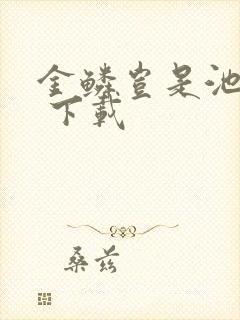 金鳞岂是池
下载
桑兹